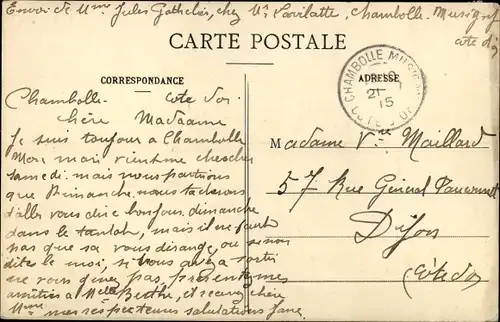 Envoi de Mme Jules Gathelier, chez Vr Lavilatte, Chambolle-Musigny
cote d'or
CARTE POSTALE
CORRESPONDANCE
ADRESSE
CHAMBOLLE MUSIGNY
21
15
COTE D'OR
Chambolle. Cote d'or.
Chère Madaame
Je suis toujour a Chambolle
Mon mari vient me chercher
samedi. mais nous partirons
que Dimanche. nous tacherons
d'aller vous dire bonjour. dimanche
dans le tantoh, mais il ne faut
pas que sa vous dérange, ou sinon
dites le moi, si vous avez a sortir
ne vous gênez pas, présentez mes
amitiées a Melle Berthe, et recevez chère
Mme mes réspectueuses salutations Jane.
Madame Vve Maillard
57 Rue Général Fauconnet
Dijon
Côte d'or